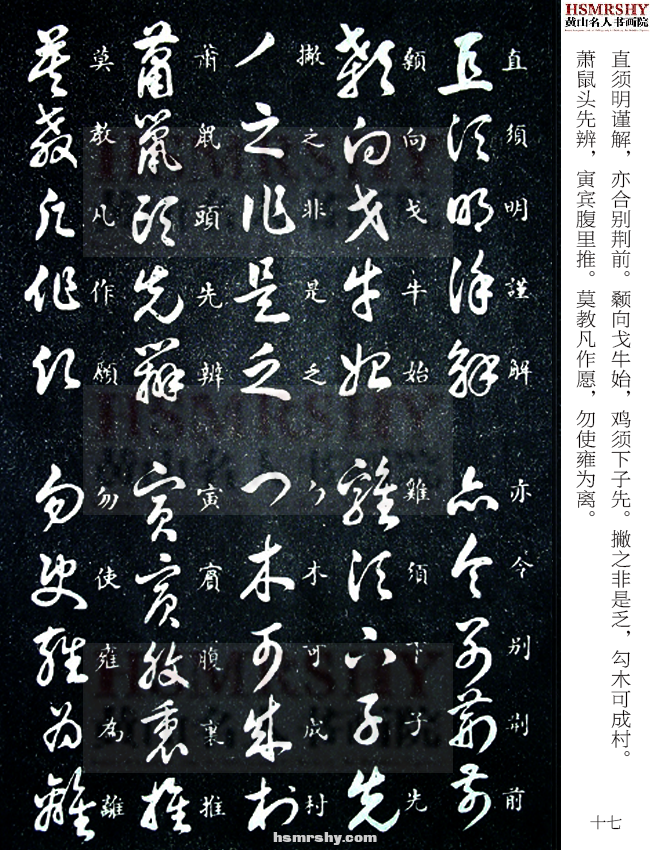 HSMRSHY
黄山名人书画院
直须明谨解，亦合别荆前。颡向戈牛始，鸡须下子先。撇之非是乏，勾木可成村。
萧鼠头先辨，寅宾腹里推。莫教凡作愿，勿使雍为离。
十七
直須明謹解 亦今别荆前
顙向戈牛始 雞須下子先
撇之非是乏 勹木可成村
萧鼠頭先辨 寅賓腹裏推
莫教凡作願 勿使雍為離
hsmrshy.com